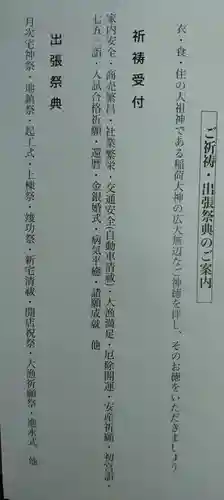 ご祈祷・出張祭典のご案内
衣・食・住の大祖神である稲荷大神の広大無辺なご神徳を拝し、そのお徳をいただきましょう
祈祷受付
家内安全・商売繁昌・社業繁栄・交通安全(自動車清祓)・大漁満足・厄除開運・安産祈願・初宮詣・
七五三詣・入試合格祈願・還暦・金銀婚式・病気平癒・諸願成就 他
出張祭典
月次宅神祭・地鎮祭・起工式・上棟祭・竣功祭・新宅清祓・開店祝祭・大漁祈願祭・進水式 他